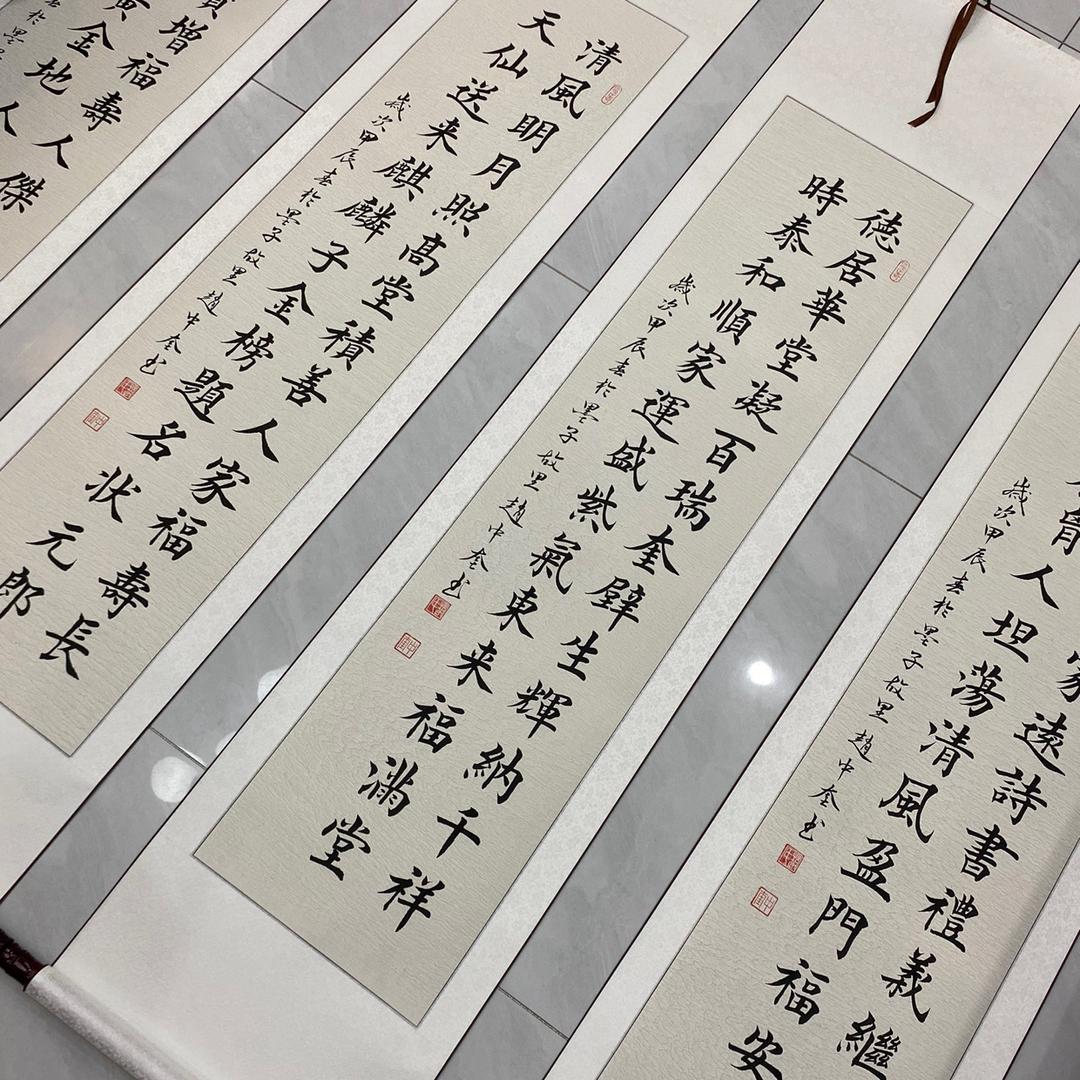 家遠詩書禮義繼
人坦蕩清風盈門福安
歲次甲辰春於墨子故里趙中奎书
德居華堂凝百瑞奎壁生輝納千祥
時泰和順家運盛紫氣東来福滿堂
歲次甲辰春於墨子故里趙中奎书
清風明月照高堂積善人家福壽長
天仙送来麒麟子金榜題名状元郎
歲次甲辰春於墨子故里趙中奎书
增福壽人傑
黄金地人
於墨